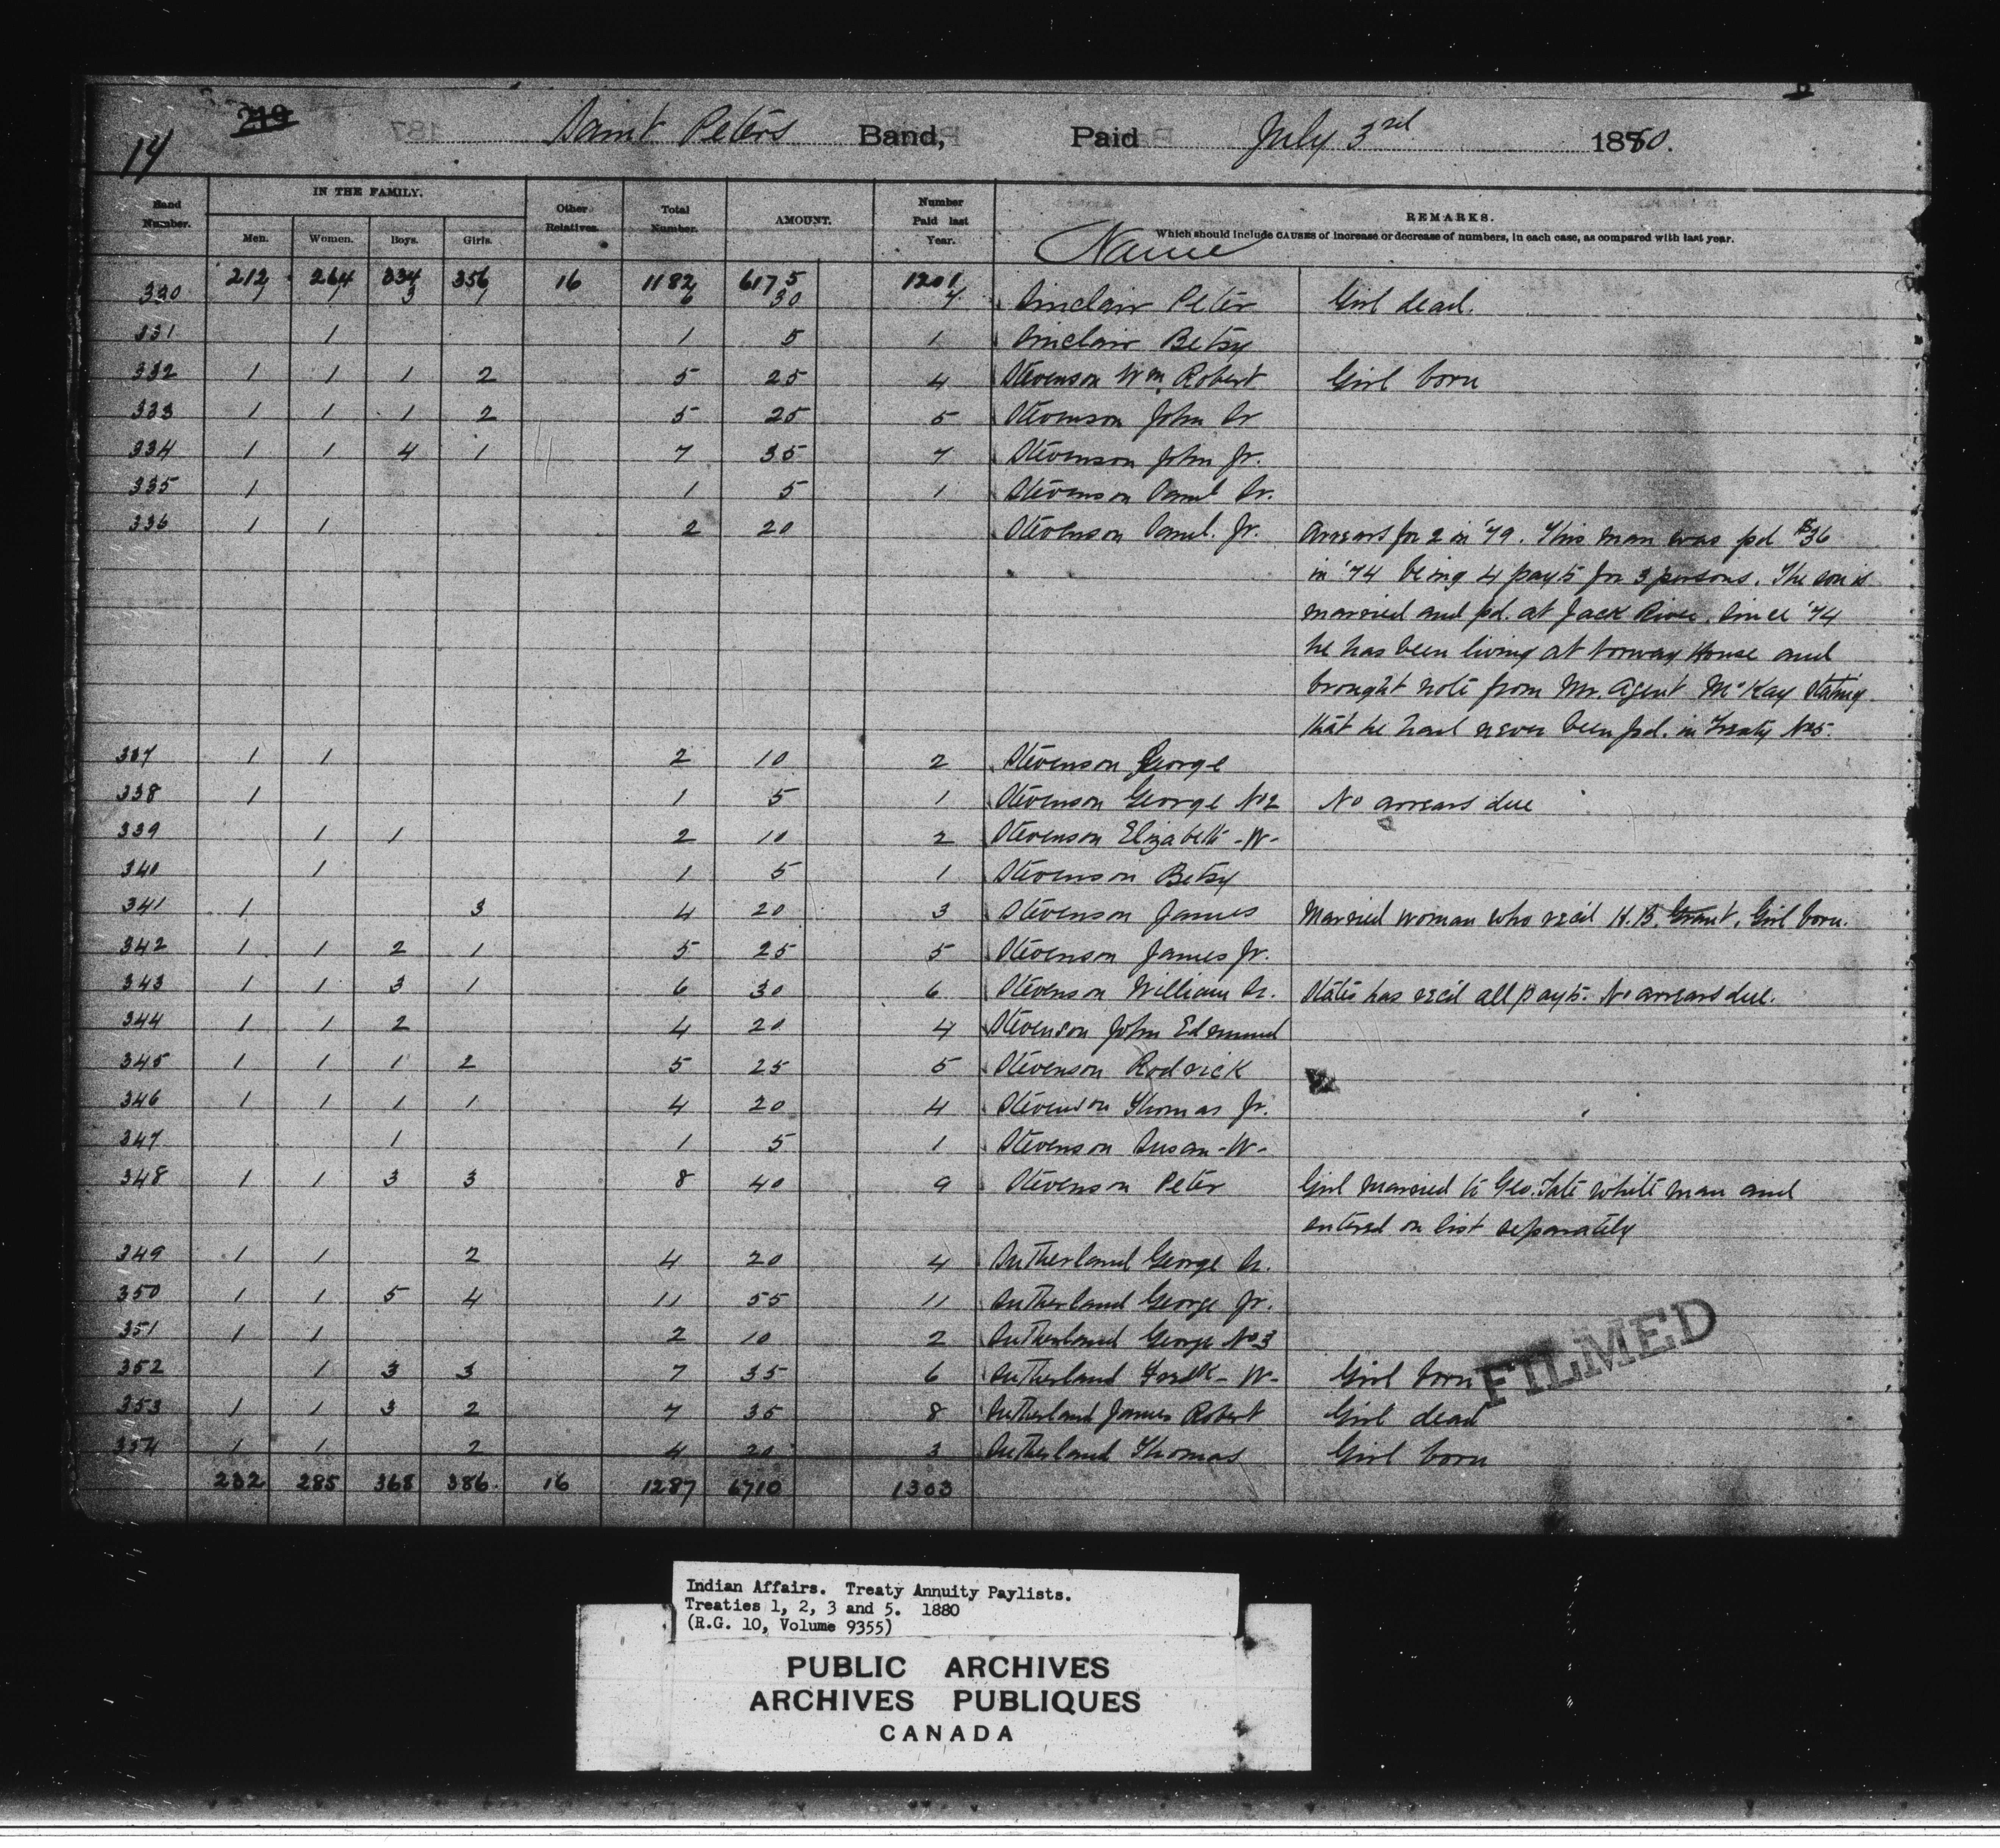 219
14
Saint Peters Band, Paid July 3rd 1880.
Band Number. IN THE FAMILY. Other Relatives. Total Number. AMOUNT. Number Paid last Year. Name REMARKS.
Men. Women. Boys. Girls. Which should include CAUSES of increase or decrease of numbers, in each case, as compared with last year.
212 264 334 356 16 1182 6175 1201
330 1 1 3 1 6 30 7 Sinclair Peter Girl dead.
331 1 1 5 1 Sinclair Betsy
332 1 1 1 2 5 25 4 Stevenson Wm Robert Girl born
333 1 1 1 2 5 25 5 Stevenson John Sr
334 1 1 4 1 7 35 7 Stevenson John Jr.
335 1 1 5 1 Stevenson Danl Sr.
336 1 1 2 20 Stevenson Danl. Jr. Arrears for 2 in '79. This man was pd $36
in '74 being 4 payts for 3 persons. The son is
married and pd. at Jack River. Since '74
he has been living at Norway House and
brought note from Mr. Agent McKay stating
that he had never been pd. in Treaty No 5.
337 1 1 2 10 2 Stevenson George
338 1 1 5 1 Stevenson George No 2 No arrears due
339 1 1 2 10 2 Stevenson Elizabeth -W-
340 1 1 5 1 Stevenson Betsy
341 1 3 4 20 3 Stevenson James Married woman who recd H.B. Grant. Girl born.
342 1 1 2 1 5 25 5 Stevenson James Jr.
343 1 1 3 1 6 30 6 Stevenson William Sr. States has recd all payts. No arrears due.
344 1 1 2 4 20 4 Stevenson John Edmund
345 1 1 1 2 5 25 5 Stevenson Rodrick
346 1 1 1 1 4 20 4 Stevenson Thomas Jr.
347 1 1 5 1 Stevenson Susan -W-
348 1 1 3 3 8 40 9 Stevenson Peter Girl married to Geo. Tate white man and
entered on list separately
349 1 1 2 4 20 4 Sutherland George Sr.
350 1 1 5 4 11 55 11 Sutherland George Jr.
351 1 1 2 10 2 Sutherland George No 3
352 1 3 3 7 35 6 Sutherland Fredk -W- Girl born
FILMED
353 1 1 3 2 7 35 8 Sutherland James Robert Girl dead
354 1 1 2 4 20 3 Sutherland Thomas Girl born
232 285 368 386 16 1287 6710 1303
Indian Affairs. Treaty Annuity Paylists.
Treaties 1, 2, 3 and 5. 1880
(R.G. 10, Volume 9355)
PUBLIC ARCHIVES
ARCHIVES PUBLIQUES
CANADA